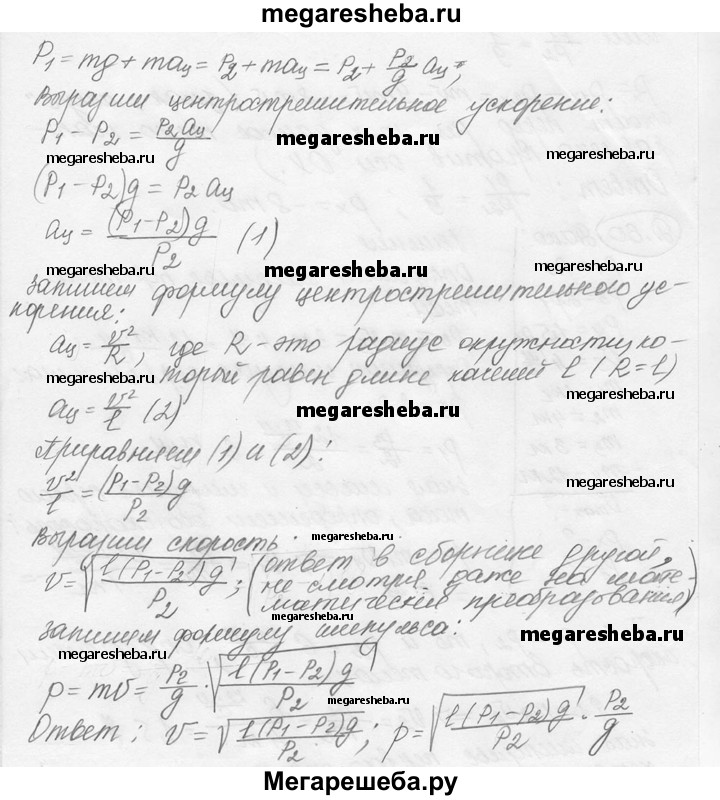 megaresheba.ru
P₁ = mg + maц = P₂ + maц = P₂ + P₂/g aц,
Выразим центростремительное ускорение:
P₁ - P₂ = P₂aц/g
megaresheba.ru megaresheba.ru megaresheba.ru
(P₁ - P₂)g = P₂ aц
aц = (P₁-P₂)g/P₂ (1)
megaresheba.ru megaresheba.ru megaresheba.ru
Запишем формулу центростремительного ус-
корения:
aц = v²/R, где R - это радиус окружности, ко-
megaresheba.ru торой равен длине качелей l (R = l)
aц = v²/l (2) megaresheba.ru megaresheba.ru
Приравняем (1) и (2):
v²/l = (P₁-P₂)g/P₂
megaresheba.ru
Выразим скорость:
v = √(l(P₁-P₂)g/P₂); (ответ в сборнике другой,
megaresheba.ru не смотря даже на мате-
матический преобразования)
Запишем формулу импульса:
megaresheba.ru megaresheba.ru
p = mv = P₂/g · √(l(P₁-P₂)g/P₂)
megaresheba.ru megaresheba.ru
Ответ: v = √(l(P₁-P₂)g/P₂); p = √(l(P₁-P₂)g/P₂) · P₂/g
megaresheba.ru
Мегарешеба.ру